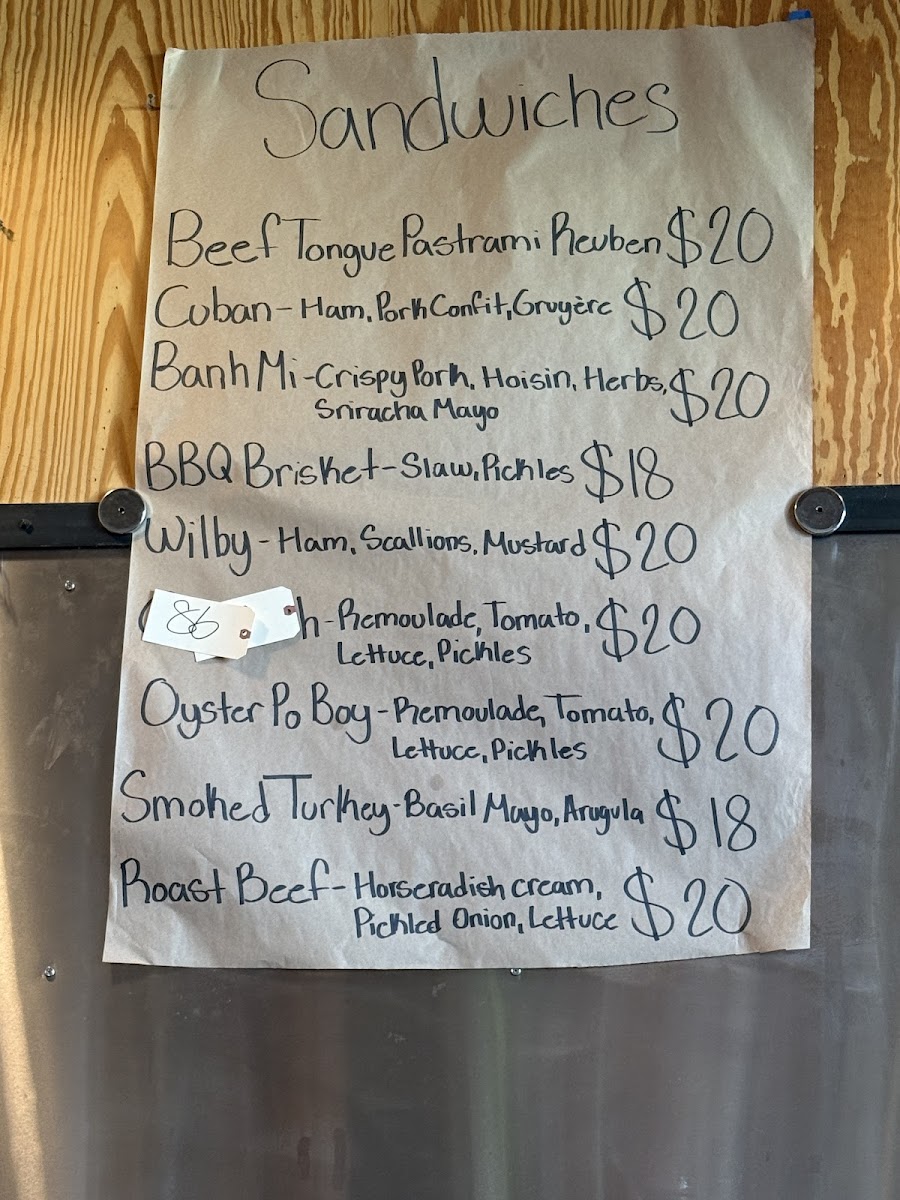 Sandwiches
Beef Tongue Pastrami Reuben $20
Cuban - Ham, Pork Confit, Gruyère $20
Banh Mi - Crispy Pork, Hoisin, Herbs, $20
Sriracha Mayo
BBQ Brisket - Slaw, Pickles $18
Wilby - Ham, Scallions, Mustard $20
86 h - Remoulade, Tomato, $20
Lettuce, Pickles
Oyster Po Boy - Remoulade, Tomato, $20
Lettuce, Pickles
Smoked Turkey - Basil Mayo, Arugula $18
Roast Beef - Horseradish cream, $20
Pickled Onion, Lettuce